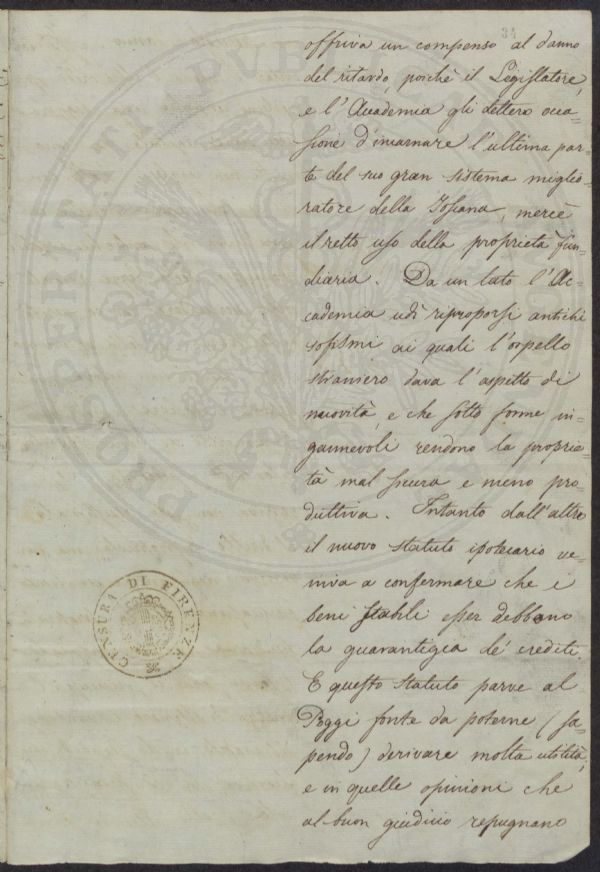 34
offriva un compenso al danno
del ritardo, poichè il Legislatore,
e l'Accademia gli dettero occa=
sione d'incarnare l'ultima par=
te del suo gran sistema miglio=
ratore della Tosana, mercè
il retto uso della proprietà fun=
diaria. Da un lato l'Ac=
cademia udì riproporsi antichi
sofismi ai quali l'orpello
straniero dava l'aspetto di
nuovità, e che sotto forme in=
gannevoli rendono la proprie=
tà mal sicura e meno pro=
duttiva. Intanto dall'altro
il nuovo statuto ipotecario ve=
niva a confermare che i
beni stabili esser debbano
la guarantigia de' crediti.
E questo statuto parve al
Poggi fonte da poterne (sa=
pendo) derivare molta utilità;
e in quelle opinioni che
al buon giudizio repugnano
CENSURA DI FIRENZE
PROSPERITATI PVBL